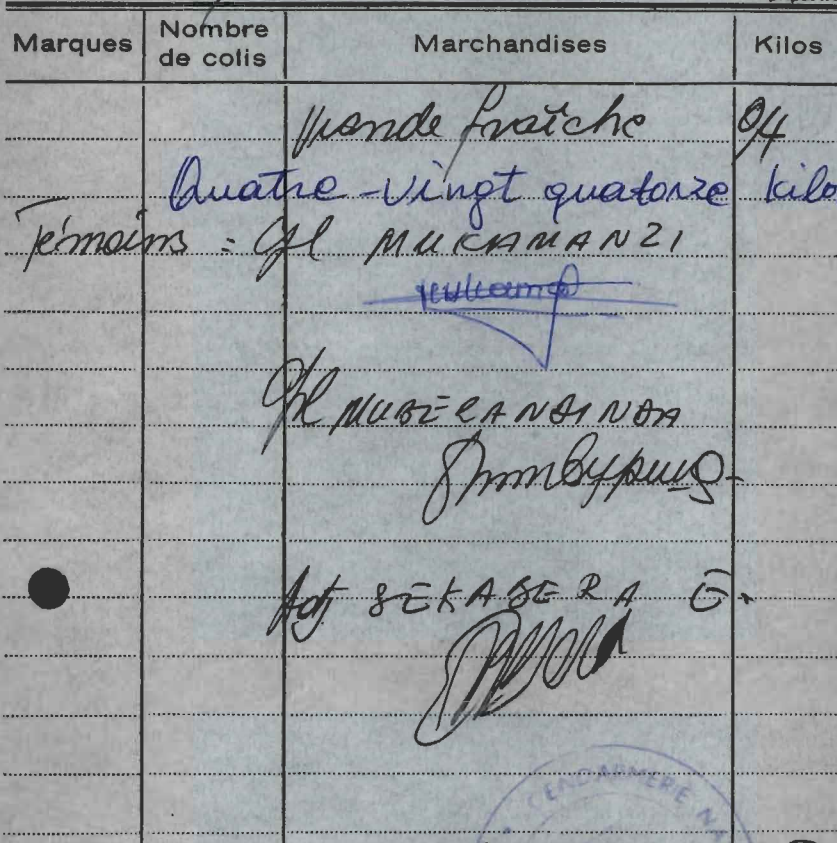 Marques Nombre de colis Marchandises Kilos
Viande fraîche 94
Quatre-vingt quatorze kilo
Témoins : Gfl MUKAMANZI
Gfl
Adj SEKAGERA E.
GENDARMERIE NA